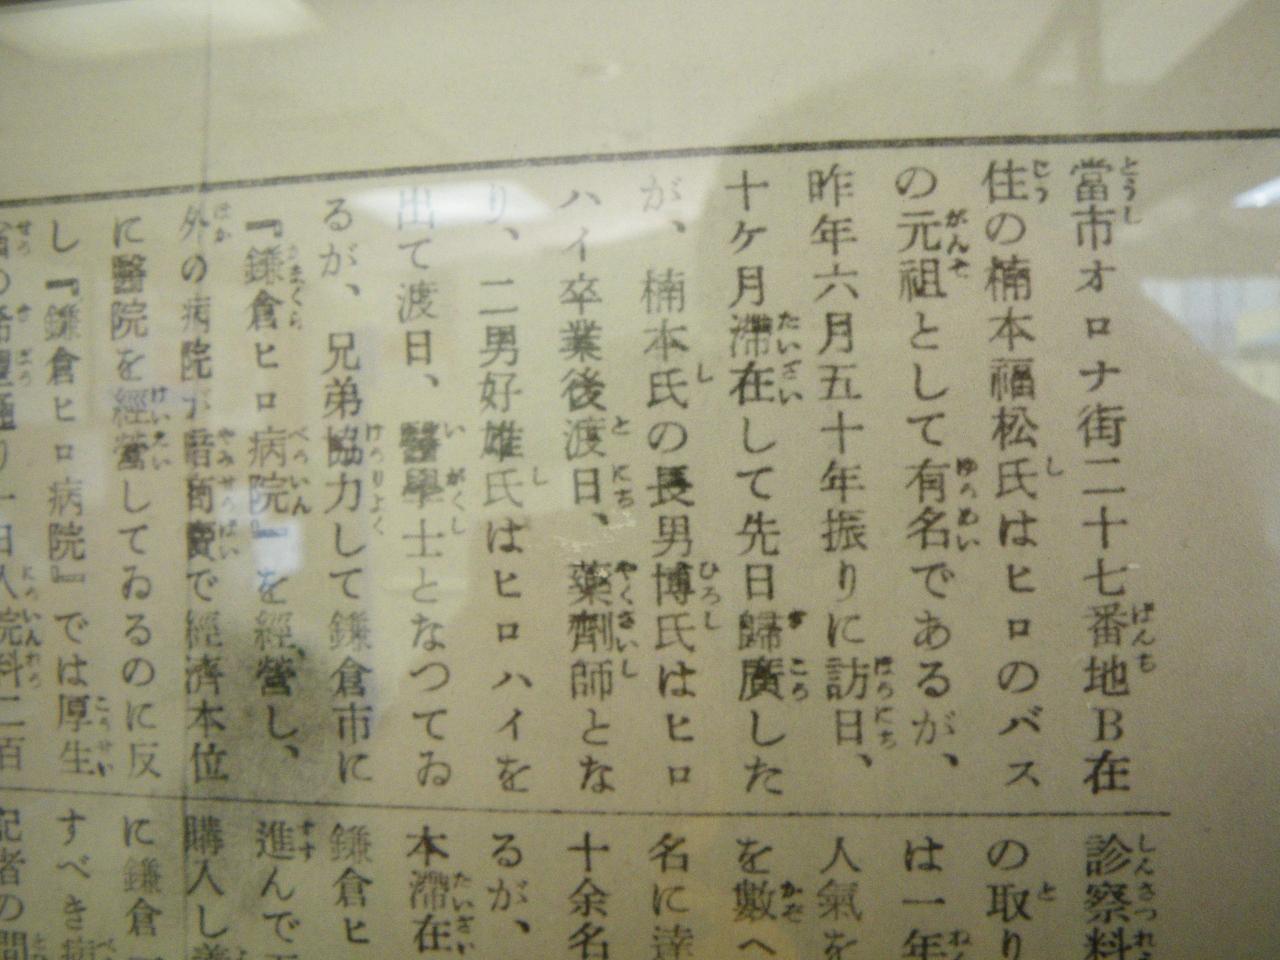 當市オロナ街二十七番地B在
住の楠本福松氏はヒロのバス
の元祖として有名であるが、
昨年六月五十年振りに訪日、
十ケ月滯在して先日歸廣した
が、楠本氏の長男博氏はヒロ
ハイ卒業後渡日、藥劑師とな
り、二男好雄氏はヒロハイを
出て渡日、醫學士となつてゐ
るが、兄弟協力して鎌倉市に
『鎌倉ヒロ病院』を經營し、
外の病院が で經濟本位
に醫院を經營してゐるのに反
し『鎌倉ヒロ病院』では厚生
の希望通り一日入院料二百
診察料
の取り
は一年
人氣を
を數へ
名に達
十余名
るが、
本滯在
鎌倉ヒ
進んで
購入し
に鎌倉
すべき病
記者の問